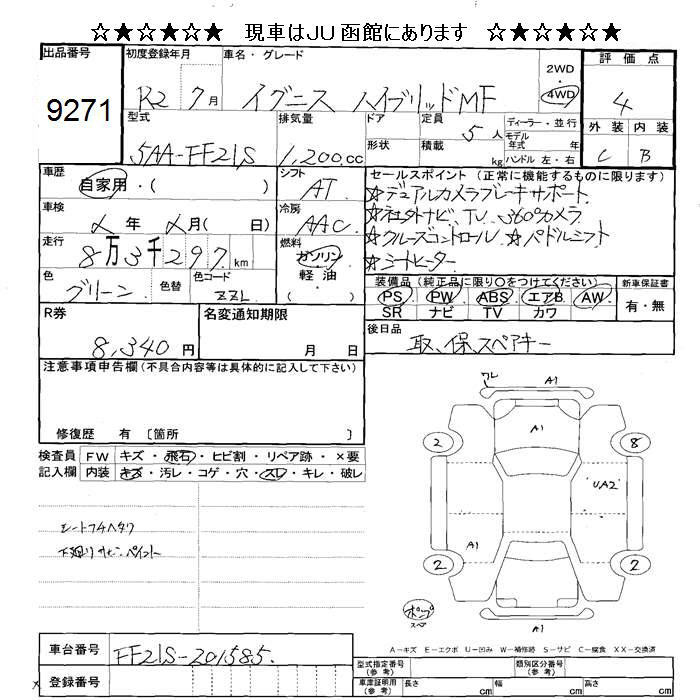 ☆★☆★☆★ 現車はJU函館にあります ☆★☆★☆★
出品番号 9271
初度登録年月 R2 7月
車名・グレード イグニス ハイブリッドMF
2WD・4WD
評価点 4
外装 内装
C B
型式 5AA-FF21S
排気量 1,200cc
ドア 形状
定員 5人
積載 kg
ディーラー・並行
モデル年式 年式
ハンドル 左・右
車歴 自家用・( )
シフト AT
車検 年 月( 日)
冷房 AAC
走行 8万3千297km
燃料 ガソリン・軽油 ( )
色 グリーン
色替
色コード ZZL
セールスポイント(正常に機能するものに限ります)
☆デュアルカメラブレーキサポート
☆社外ナビ、TV、360°カメラ
☆クルーズコントロール ☆パドルシフト
☆シートヒーター
装備品(純正品に限り○をつけてください)
PS PW ABS エアB AW
SR ナビ TV カワ
新車保証書 有・無
R券 8,340円
名変通知期限 月 日
後日品 取、保、スペアキー
注意事項申告欄(不具合内容等は具体的に記入して下さい)
修復歴 有 〔箇所 〕
検査員記入欄
FW キズ・飛石・ヒビ割・リペア跡・×要
内装 キズ・汚レ・コゲ・穴・スレ・キレ・破レ
下廻りサビ、ペイント
ワレ A1
A1
2 8
UA2
A1
2 2
A1
A-キズ E-エクボ U-凹み W-補修跡 S-サビ C-腐食 XX-交換済
車台番号 FF21S-201585
登録番号
型式指定番号(参考)
類別区分番号(参考)
車庫証明用(参考) 長さ cm 幅 cm 高さ cm